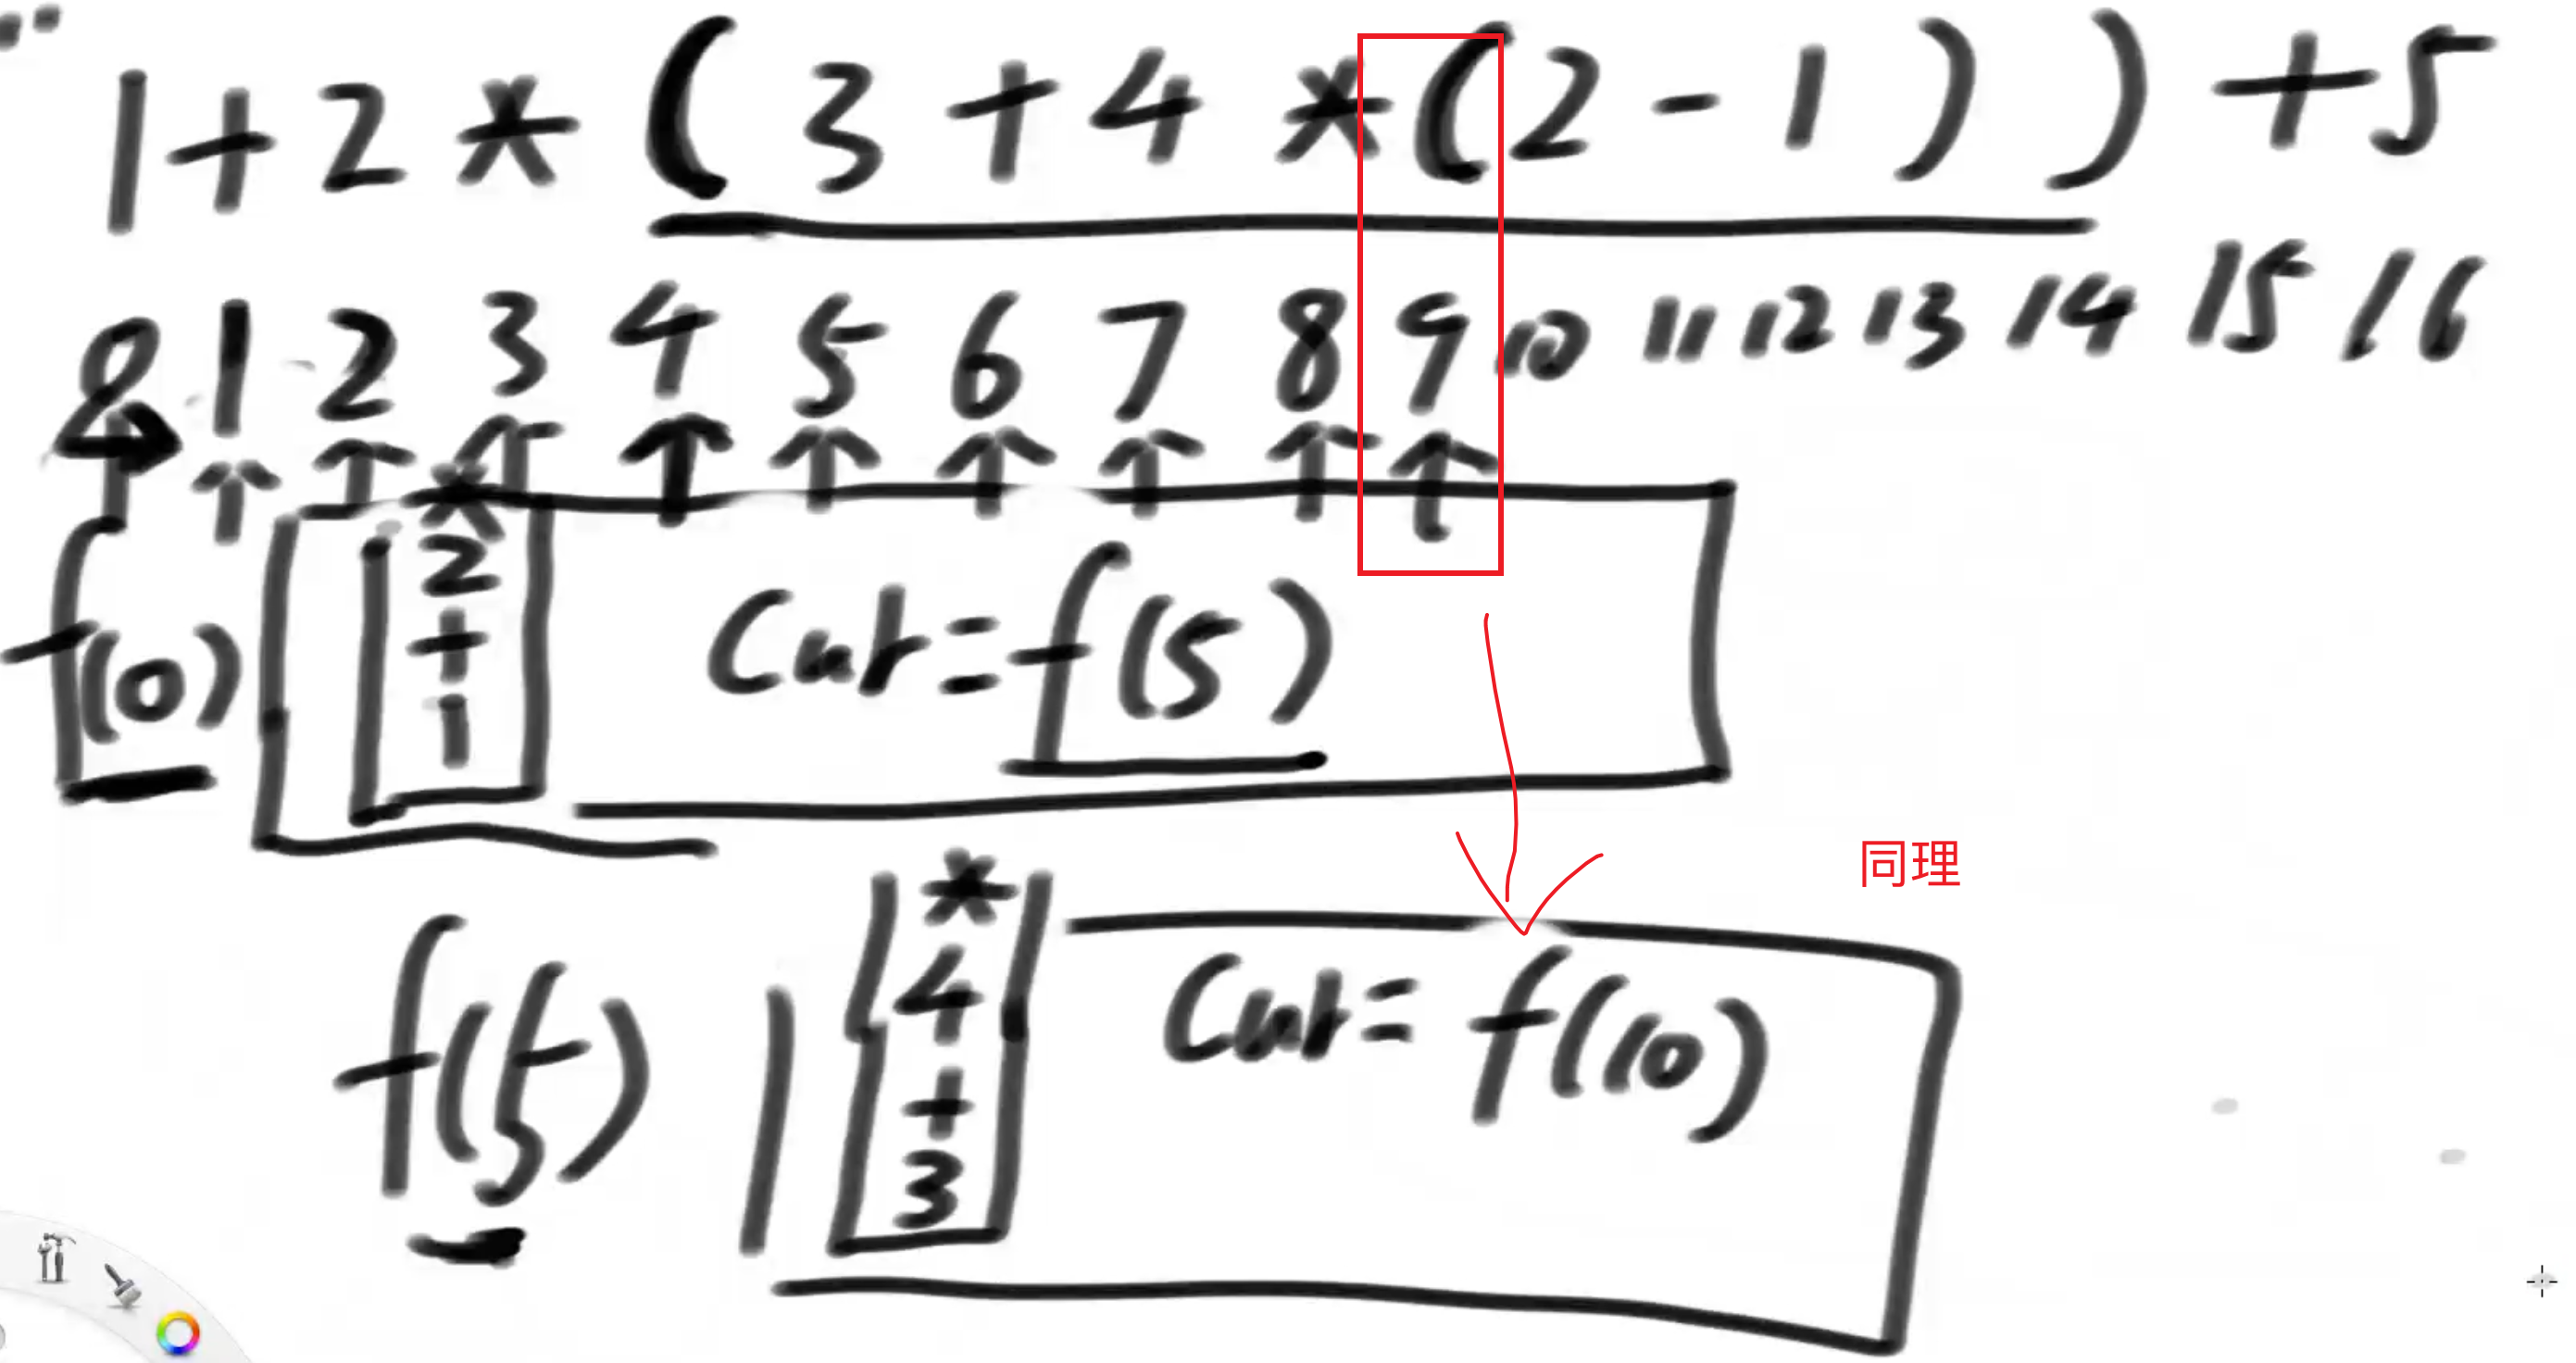 1+2*(3+4*(2-1))+5
0 1 2 3 4 5 6 7 8 9 10 11 12 13 14 15 16
f(0)
*
2
+
1
Cur=f(5)
同理
f(5)
*
4
+
3
Cur=f(10)